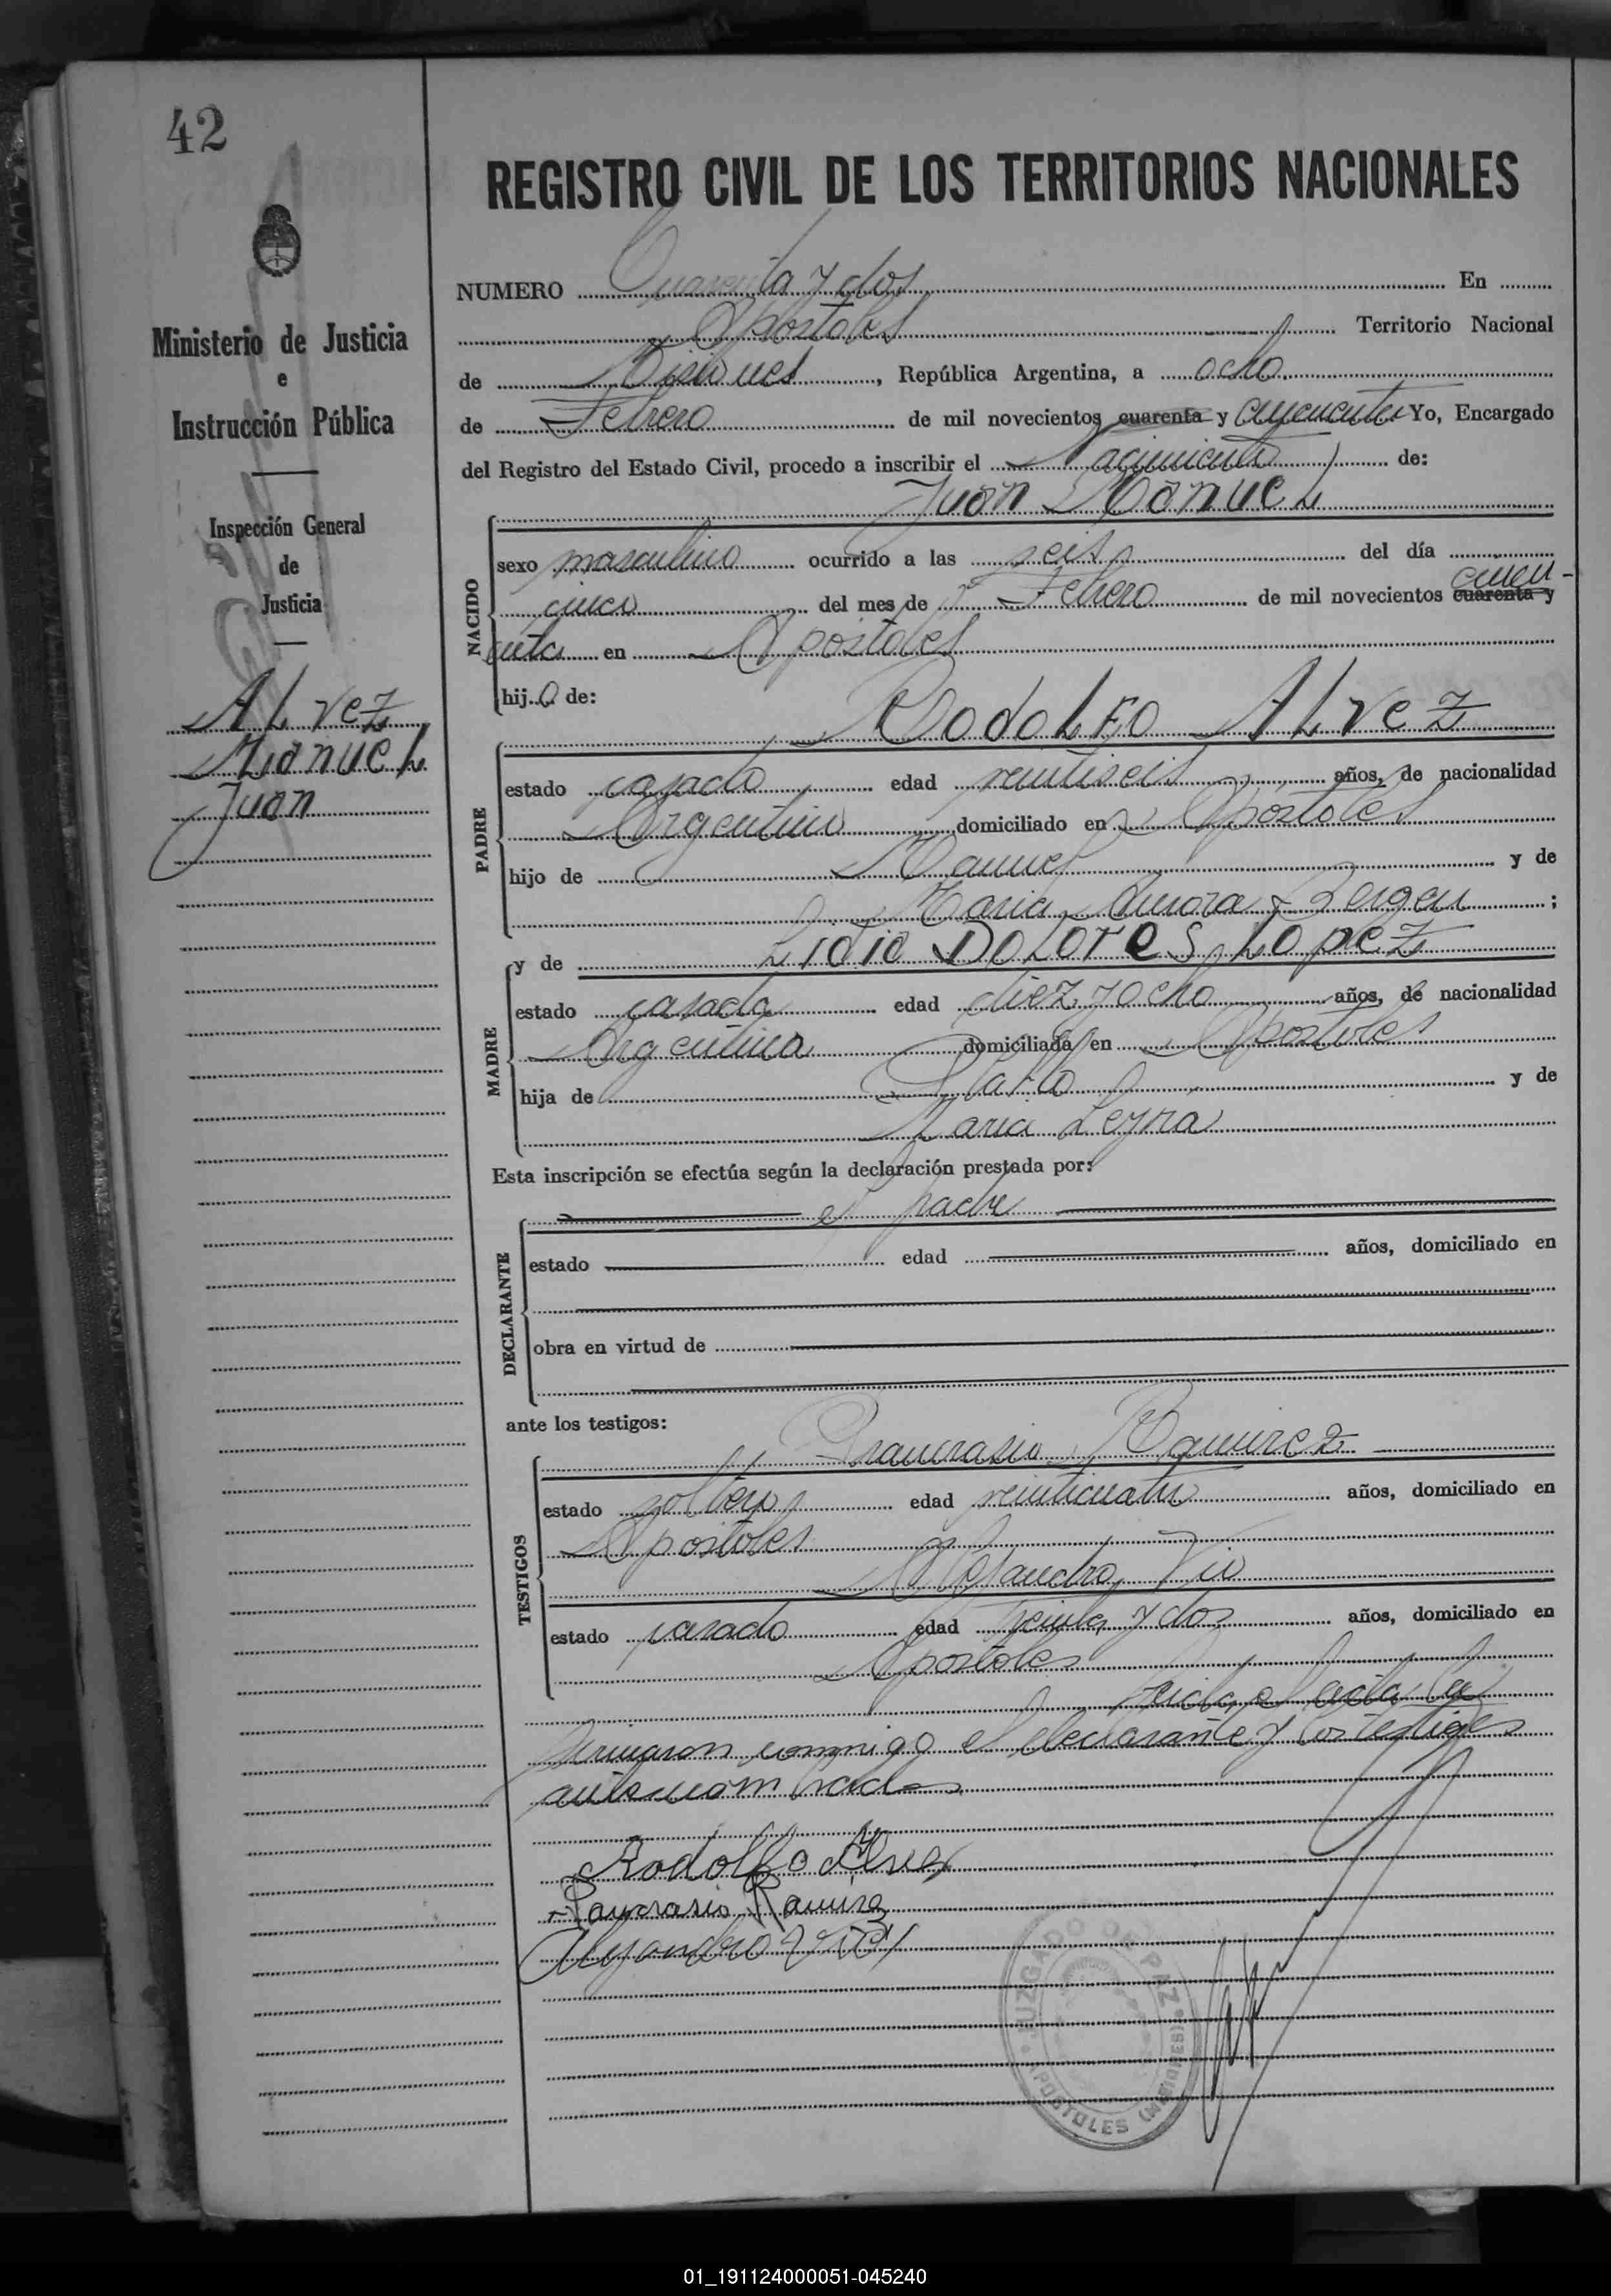 42
REGISTRO CIVIL DE LOS TERRITORIOS NACIONALES
Ministerio de Justicia
e
Instrucción Pública
Inspección General
de
Justicia
Alvez
Manuel
Juan
NUMERO Cuarenta y dos En
Apostoles Territorio Nacional
de Misiones, República Argentina, a ocho
de Febrero de mil novecientos cuarenta y cincuenta Yo, Encargado
del Registro del Estado Civil, procedo a inscribir el Nacimiento de:
Juan Manuel
NACIDO
sexo masculino ocurrido a las seis del día
cinco del mes de Febrero de mil novecientos cuarenta y cincu-
enta en Apostoles
hijo de:
Rodolfo Alvez
PADRE
estado casado edad veintiseis años, de nacionalidad
Argentino domiciliado en Apostoles
hijo de Manuel y de
Maria Aurora ;
y de Lidia Dolores Lopez
MADRE
estado casada edad diez y ocho años, de nacionalidad
Argentina domiciliada en Apostoles
hija de y de
Maria Leyra
Esta inscripción se efectúa según la declaración prestada por:
el padre
DECLARANTE
estado edad años, domiciliado en
obra en virtud de
ante los testigos:
Pancrasio Ramirez
TESTIGOS
estado soltero edad veinticuatro años, domiciliado en
Apostoles
Alejandro
estado casado edad treinta y dos años, domiciliado en
Apostoles
Leida el acta la
firmaron conmigo el declarante y los testigos
antenombrados
Rodolfo Alvez
Pancrasio Ramirez
Alejandro
JUZGADO DE PAZ
APOSTOLES (MISIONES)
01_191124000051-045240